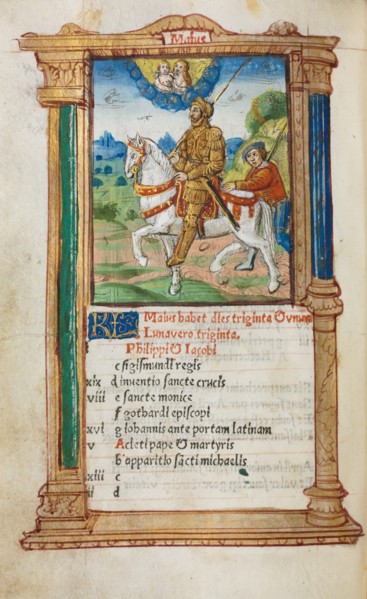 Maius
KL Maius habet dies triginta & unum
Luna vero triginta.
Philippi & Iacobi
c sigismundi regis
xix d inventio sancte crucis
viii e sancte monice
f gothardi episcopi
xvi g iohannis ante portam latinam
v A cleti pape & martyris
b apparitio sācti michaelis
xiii c
ii d